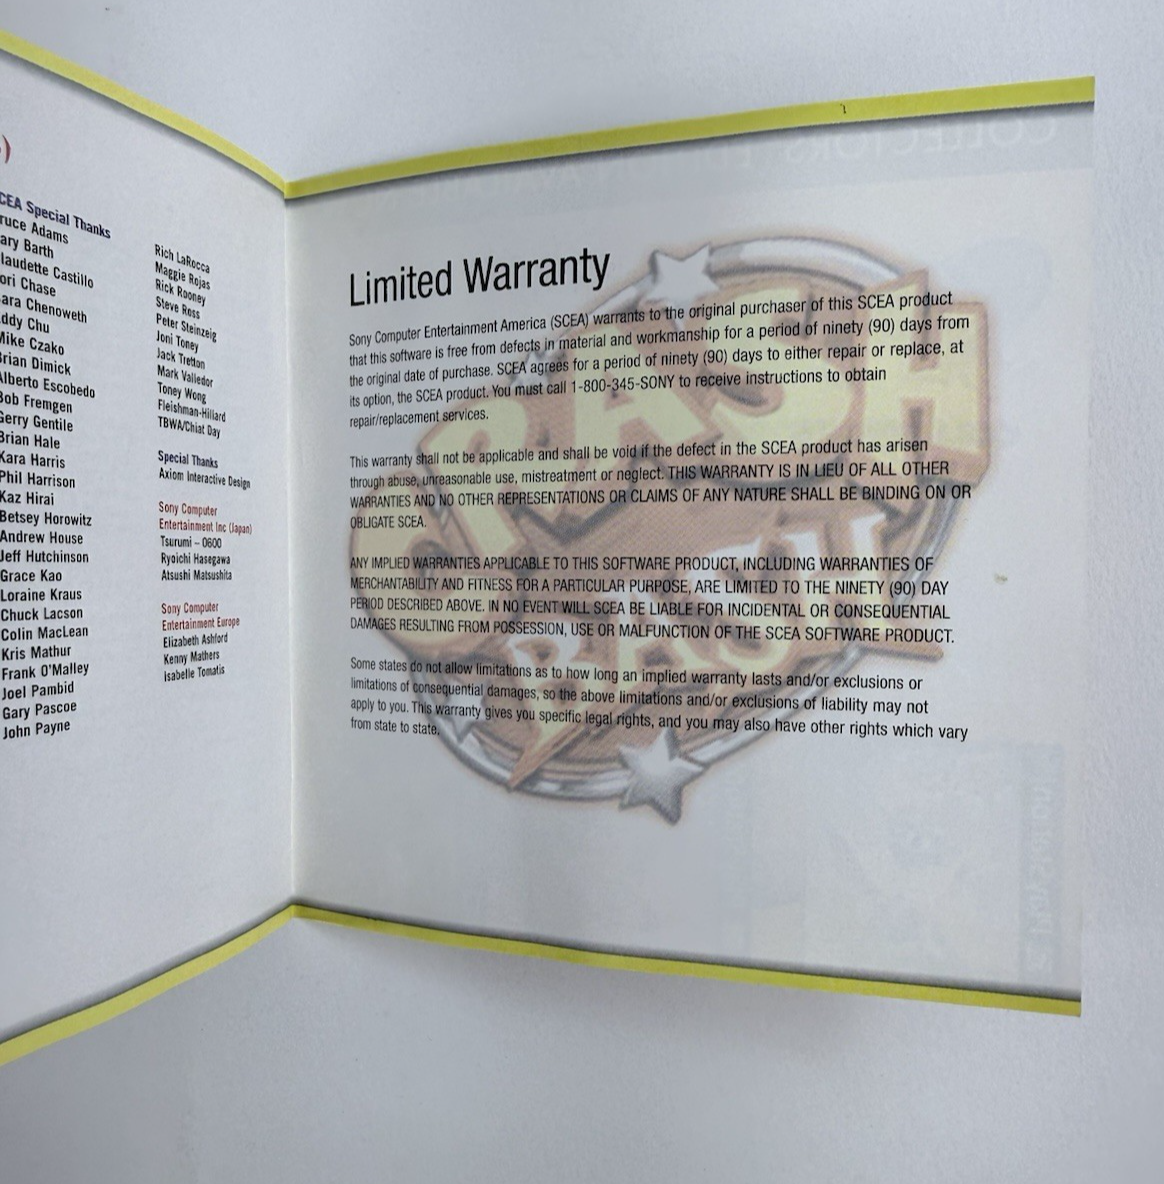 SCEA Special Thanks
Bruce Adams
Claudette Castillo
Mike Czako
Brian Dimick
Alberto Escobedo
Bob Fremgen
Gerry Gentile
Brian Hale
Kara Harris
Phil Harrison
Kaz Hirai
Betsey Horowitz
Andrew House
Jeff Hutchinson
Grace Kao
Loraine Kraus
Chuck Lacson
Colin MacLean
Kris Mathur
Frank O'Malley
Joel Pambid
Gary Pascoe
John Payne
Rich LaRocca
Maggie Rojas
Rick Rooney
Steve Ross
Peter Steinzeig
Joni Toney
Jack Tretton
Mark Valledor
Toney Wong
Fleishman-Hillard
TBWA/Chiat Day
Special Thanks
Axiom Interactive Design
Sony Computer
Entertainment Inc (Japan)
Tsurumi – 0600
Ryoichi Hasegawa
Atsushi Matsushita
Sony Computer
Entertainment Europe
Elizabeth Ashford
Kenny Mathers
Isabelle Tomatis
Limited Warranty
Sony Computer Entertainment America (SCEA) warrants to the original purchaser of this SCEA product
that this software is free from defects in material and workmanship for a period of ninety (90) days from
the original date of purchase. SCEA agrees for a period of ninety (90) days to either repair or replace, at
its option, the SCEA product. You must call 1-800-345-SONY to receive instructions to obtain
repair/replacement services.
This warranty shall not be applicable and shall be void if the defect in the SCEA product has arisen
through abuse, unreasonable use, mistreatment or neglect. THIS WARRANTY IS IN LIEU OF ALL OTHER
WARRANTIES AND NO OTHER REPRESENTATIONS OR CLAIMS OF ANY NATURE SHALL BE BINDING ON OR
OBLIGATE SCEA.
ANY IMPLIED WARRANTIES APPLICABLE TO THIS SOFTWARE PRODUCT, INCLUDING WARRANTIES OF
MERCHANTABILITY AND FITNESS FOR A PARTICULAR PURPOSE, ARE LIMITED TO THE NINETY (90) DAY
PERIOD DESCRIBED ABOVE. IN NO EVENT WILL SCEA BE LIABLE FOR INCIDENTAL OR CONSEQUENTIAL
DAMAGES RESULTING FROM POSSESSION, USE OR MALFUNCTION OF THE SCEA SOFTWARE PRODUCT.
Some states do not allow limitations as to how long an implied warranty lasts and/or exclusions or
limitations of consequential damages, so the above limitations and/or exclusions of liability may not
apply to you. This warranty gives you specific legal rights, and you may also have other rights which vary
from state to state.
CRASH
BASH